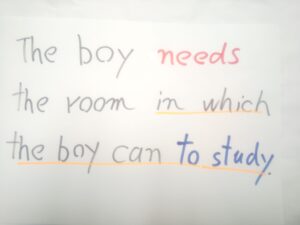 The boy needs
the room in which
the boy can to study.